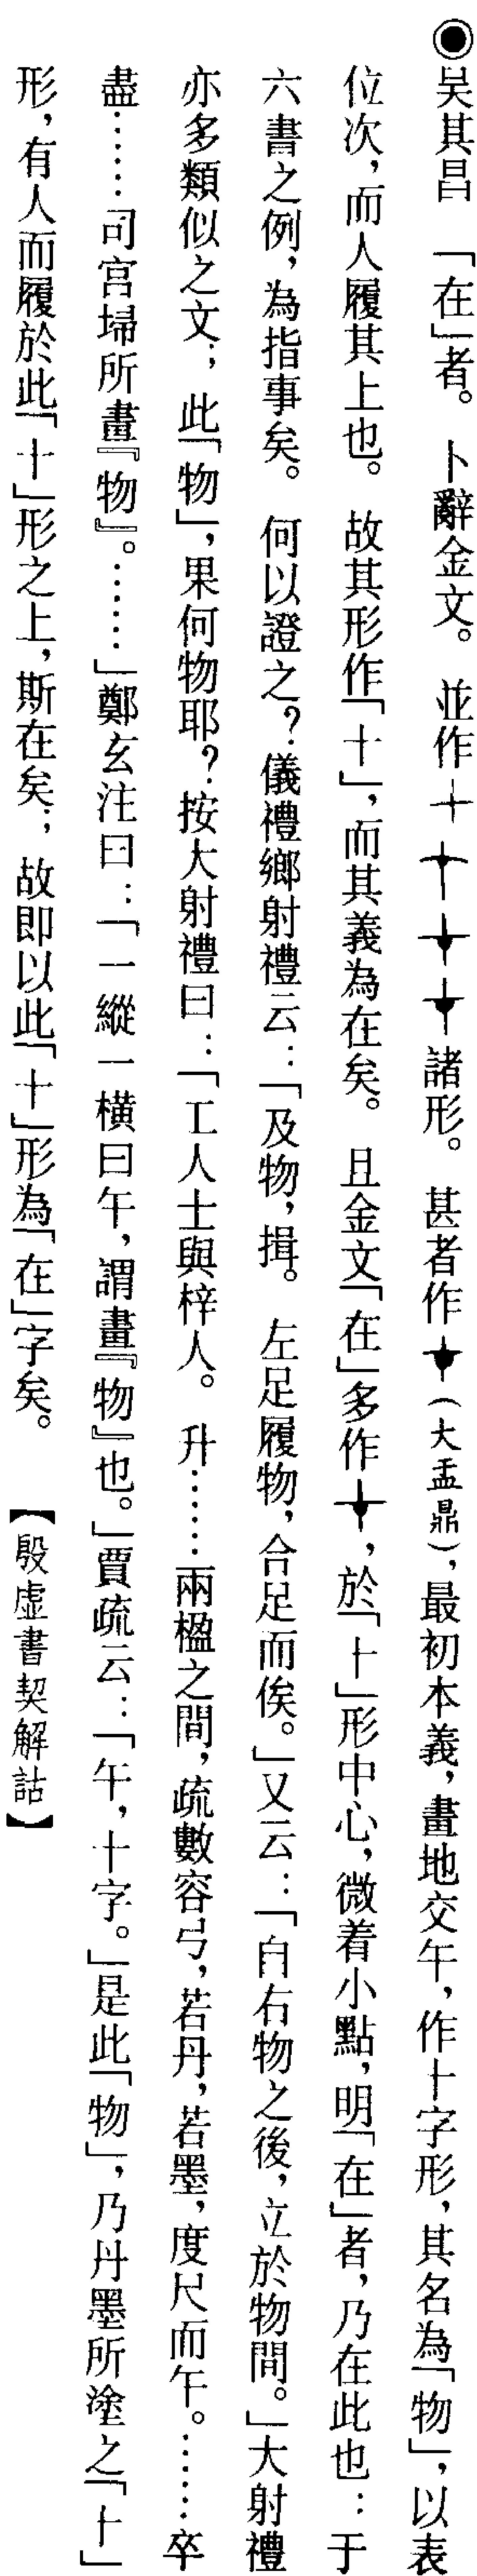 ◉吴其昌　「在」者。卜辭金文。並作諸形。甚者作（大盂鼎），最初本義，畫地交午，作十字形，其名為「物」，以表
位次，而人履其上也。故其形作「十」，而其義為在矣。且金文「在」多作，於「十」形中心，微着小點，明「在」者，乃在此也：于
六書之例，為指事矣。何以證之？儀禮鄉射禮云：「及物，揖。左足履物，合足而俟。」又云：「自右物之後，立於物間。」大射禮
亦多類似之文；此「物」，果何物耶？按大射禮曰：「工人士與梓人。升……兩楹之間，疏數容弓，若丹，若墨，度尺而午。……卒
盡……司宮埽所畫『物』。……」鄭玄注曰：「一縱一橫曰午，謂畫『物』也。」賈疏云：「午，十字。」是此「物」，乃丹墨所塗之「十」
形，有人而履於此「十」形之上，斯在矣；故即以此「十」形為「在」字矣。【殷虛書契解詁】